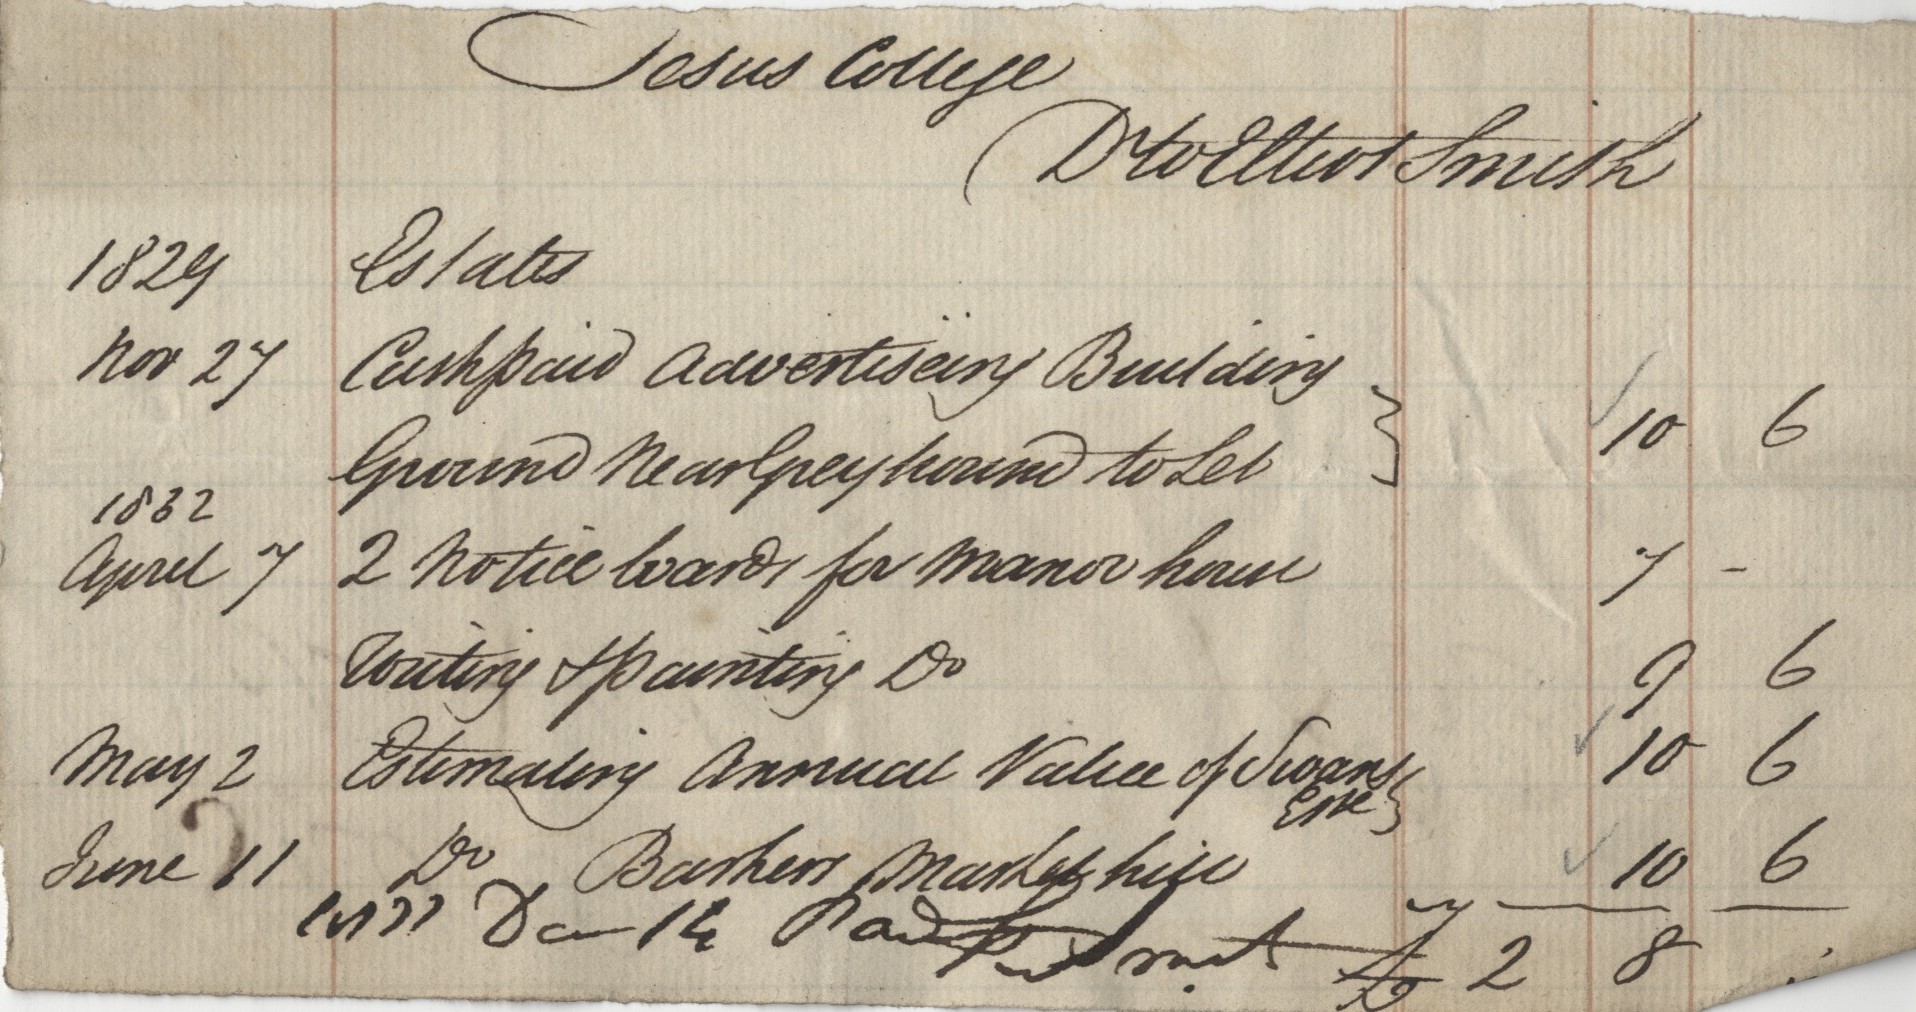 Jesus College
Dr to Elliot Smith
1829 Estates
Nov 27 Cash paid Advertiseing Building
Ground Near Greyhound to Let } 10 6
1832
April 7 2 Notice boards for Manor house 7 -
Writing & painting Do 9 6
May 2 Estimating Annual Value of Swans
Este } 10 6
June 11 Do Barkers Market hill 10 6
Paid £ 2 8